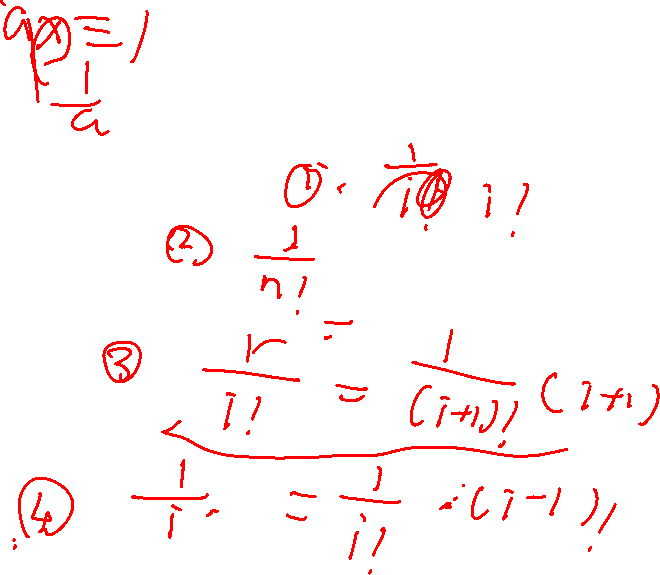 a(x) ≡ 1
1/a
① i!
② 1/n! =
③ 1/i! = 1/(i+1)! (i+1)
④ 1/i = 1/i! · (i-1)!